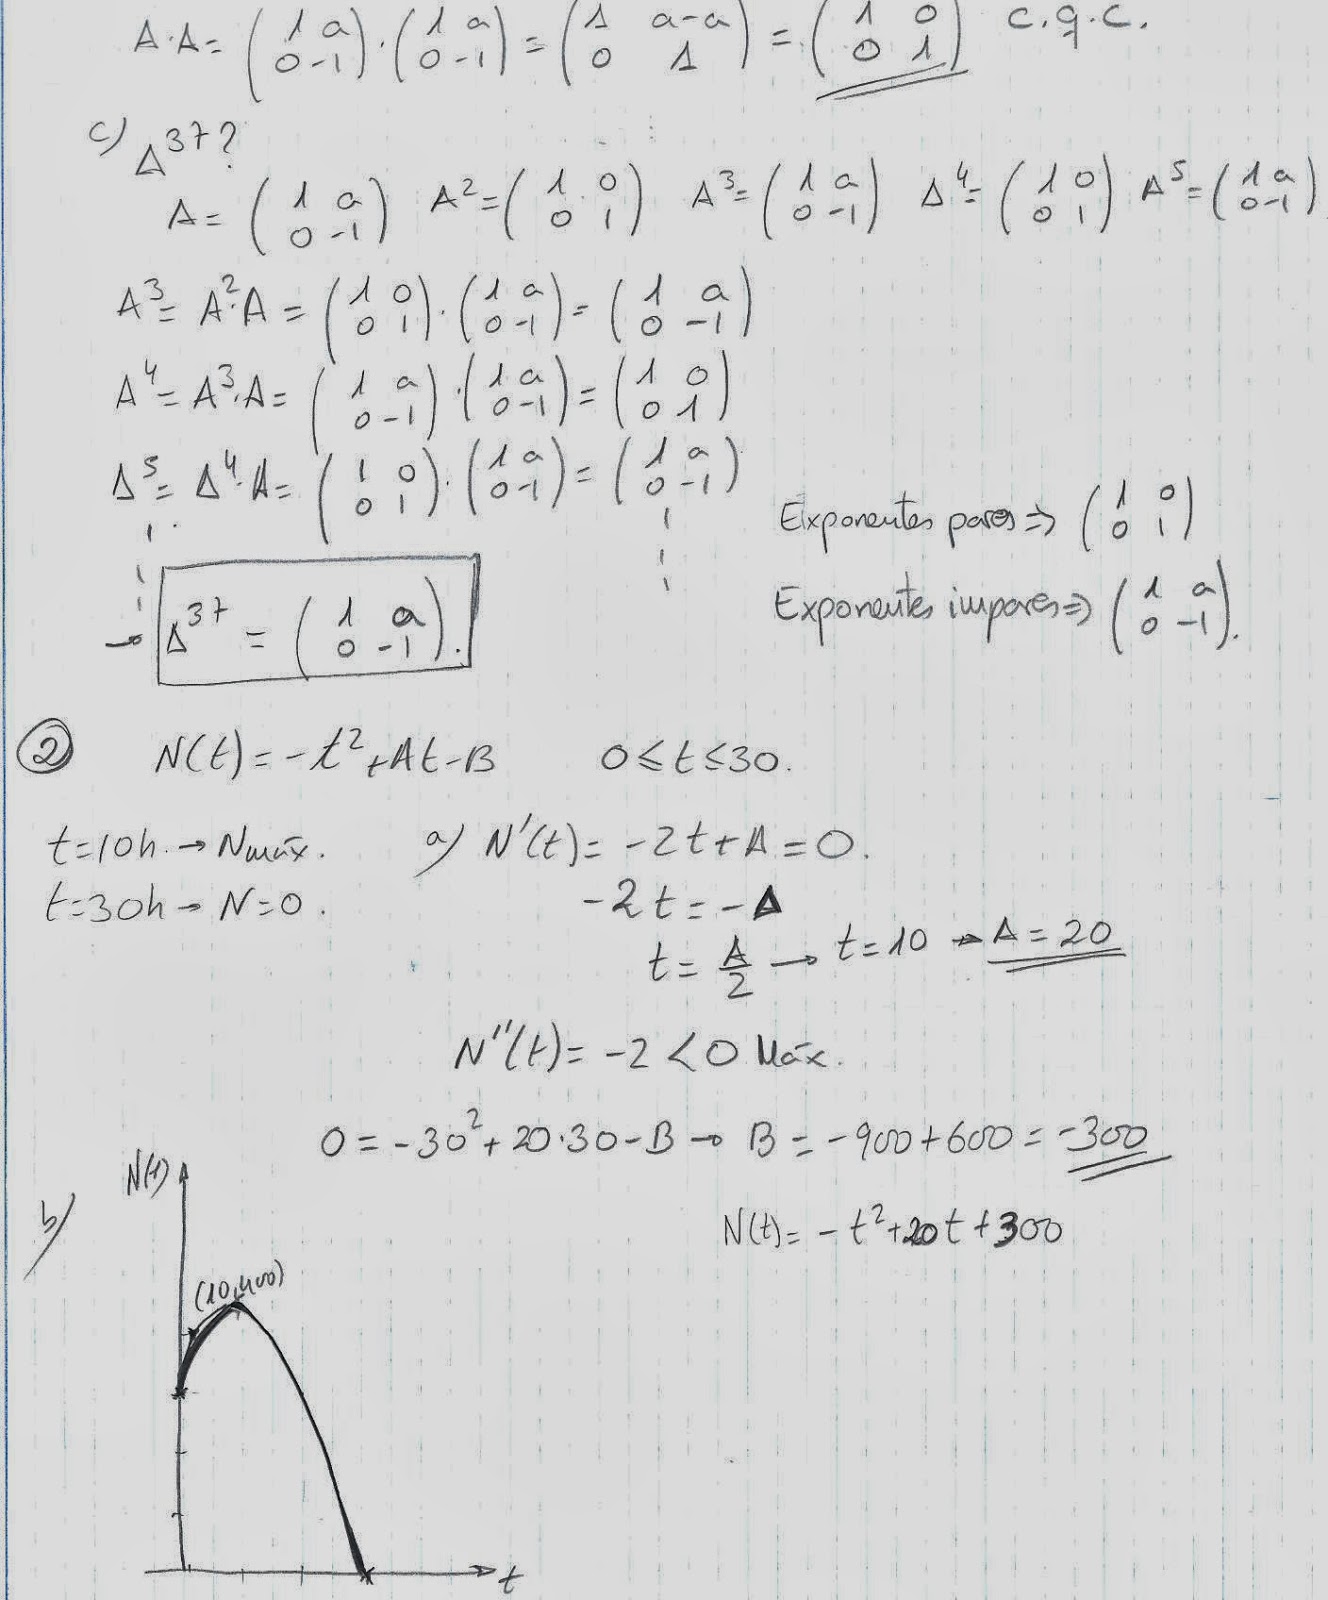 A·A = (1 a / 0 -1) · (1 a / 0 -1) = (1 a-a / 0 1) = (1 0 / 0 1) c.q.c.
c) A^37?
A = (1 a / 0 -1) A^2 = (1 0 / 0 1) A^3 = (1 a / 0 -1) A^4 = (1 0 / 0 1) A^5 = (1 a / 0 -1)
A^3 = A^2·A = (1 0 / 0 1) · (1 a / 0 -1) = (1 a / 0 -1)
A^4 = A^3·A = (1 a / 0 -1) · (1 a / 0 -1) = (1 0 / 0 1)
A^5 = A^4·A = (1 0 / 0 1) · (1 a / 0 -1) = (1 a / 0 -1)
Exponentes pares ⇒ (1 0 / 0 1)
Exponentes impares ⇒ (1 a / 0 -1).
→ A^37 = (1 a / 0 -1).
② N(t) = -t² + At - B 0 ≤ t ≤ 30.
t = 10h. → Nmáx. a) N'(t) = -2t + A = 0.
t = 30h → N = 0. -2t = -A
t = A/2 → t = 10 → A = 20
N''(t) = -2 < 0 Máx.
0 = -30² + 20·30 - B → B = -900 + 600 = -300
N(t) = -t² + 20t + 300
b) N(t)
(10,400)
t